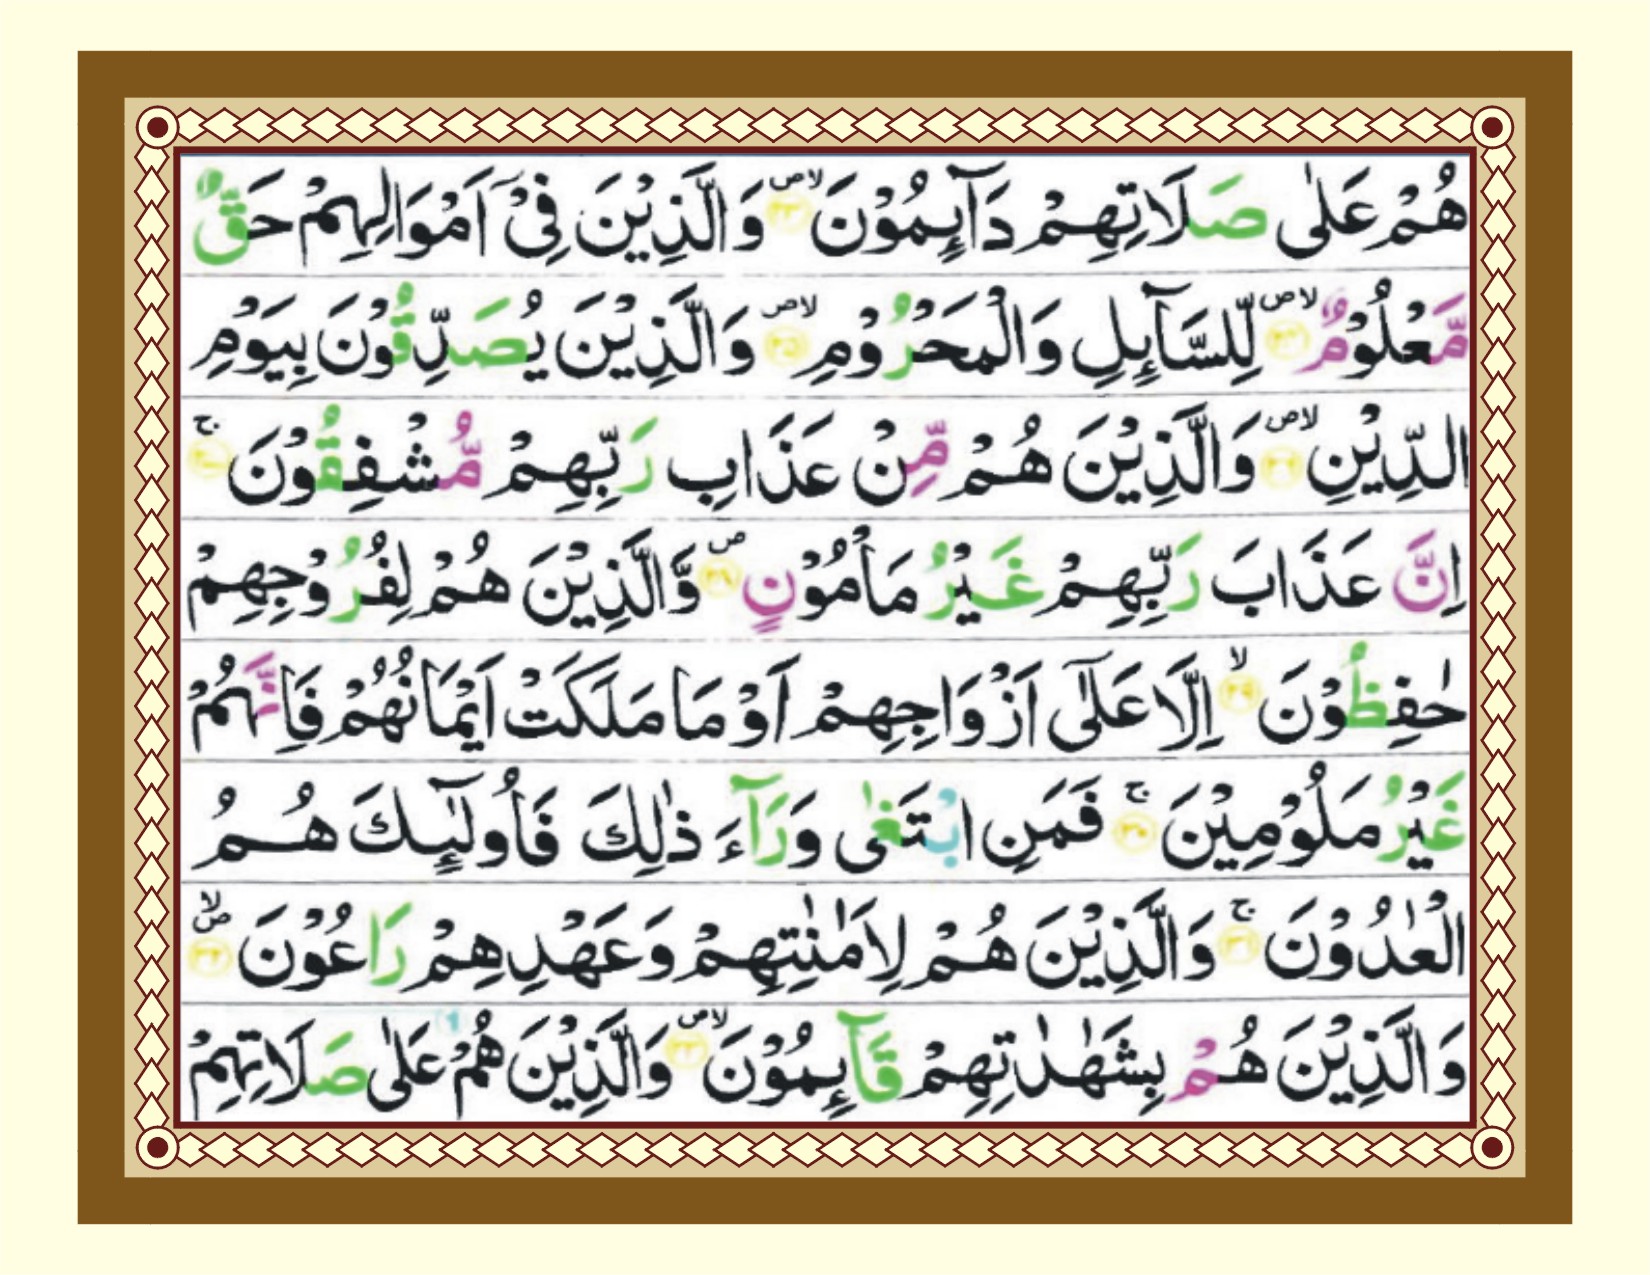 هُمْ عَلٰى صَلَاتِهِمْ دَآىِٕمُوْنَ ۪ۙ ﴿۲۳﴾ وَالَّذِيْنَ فِىْٓ اَمْوَالِهِمْ حَقٌّ
مَّعْلُوْمٌ ۪ۙ ﴿۲۴﴾ لِّلسَّآىِٕلِ وَالْمَحْرُوْمِ ۪ۙ ﴿۲۵﴾ وَالَّذِيْنَ يُصَدِّقُوْنَ بِيَوْمِ
الدِّيْنِ ۪ۙ ﴿۲۶﴾ وَالَّذِيْنَ هُمْ مِّنْ عَذَابِ رَبِّهِمْ مُّشْفِقُوْنَ ۚ ﴿۲۷﴾
اِنَّ عَذَابَ رَبِّهِمْ غَيْرُ مَاْمُوْنٍ ۪ ﴿۲۸﴾ وَّالَّذِيْنَ هُمْ لِفُرُوْجِهِمْ
حٰفِظُوْنَ ۙ ﴿۲۹﴾ اِلَّا عَلٰٓى اَزْوَاجِهِمْ اَوْ مَا مَلَكَتْ اَيْمَانُهُمْ فَاِنَّهُمْ
غَيْرُ مَلُوْمِيْنَ ۚ ﴿۳۰﴾ فَمَنِ ابْتَغٰى وَرَآءَ ذٰلِكَ فَاُولٰٓىِٕكَ هُمُ
الْعٰدُوْنَ ۚ ﴿۳۱﴾ وَالَّذِيْنَ هُمْ لِاَمٰنٰتِهِمْ وَعَهْدِهِمْ رَاعُوْنَ ۪ۙ ﴿۳۲﴾
وَالَّذِيْنَ هُمْ بِشَهٰدٰتِهِمْ قَآىِٕمُوْنَ ۪ۙ ﴿۳۳﴾ وَالَّذِيْنَ هُمْ عَلٰى صَلَاتِهِمْ